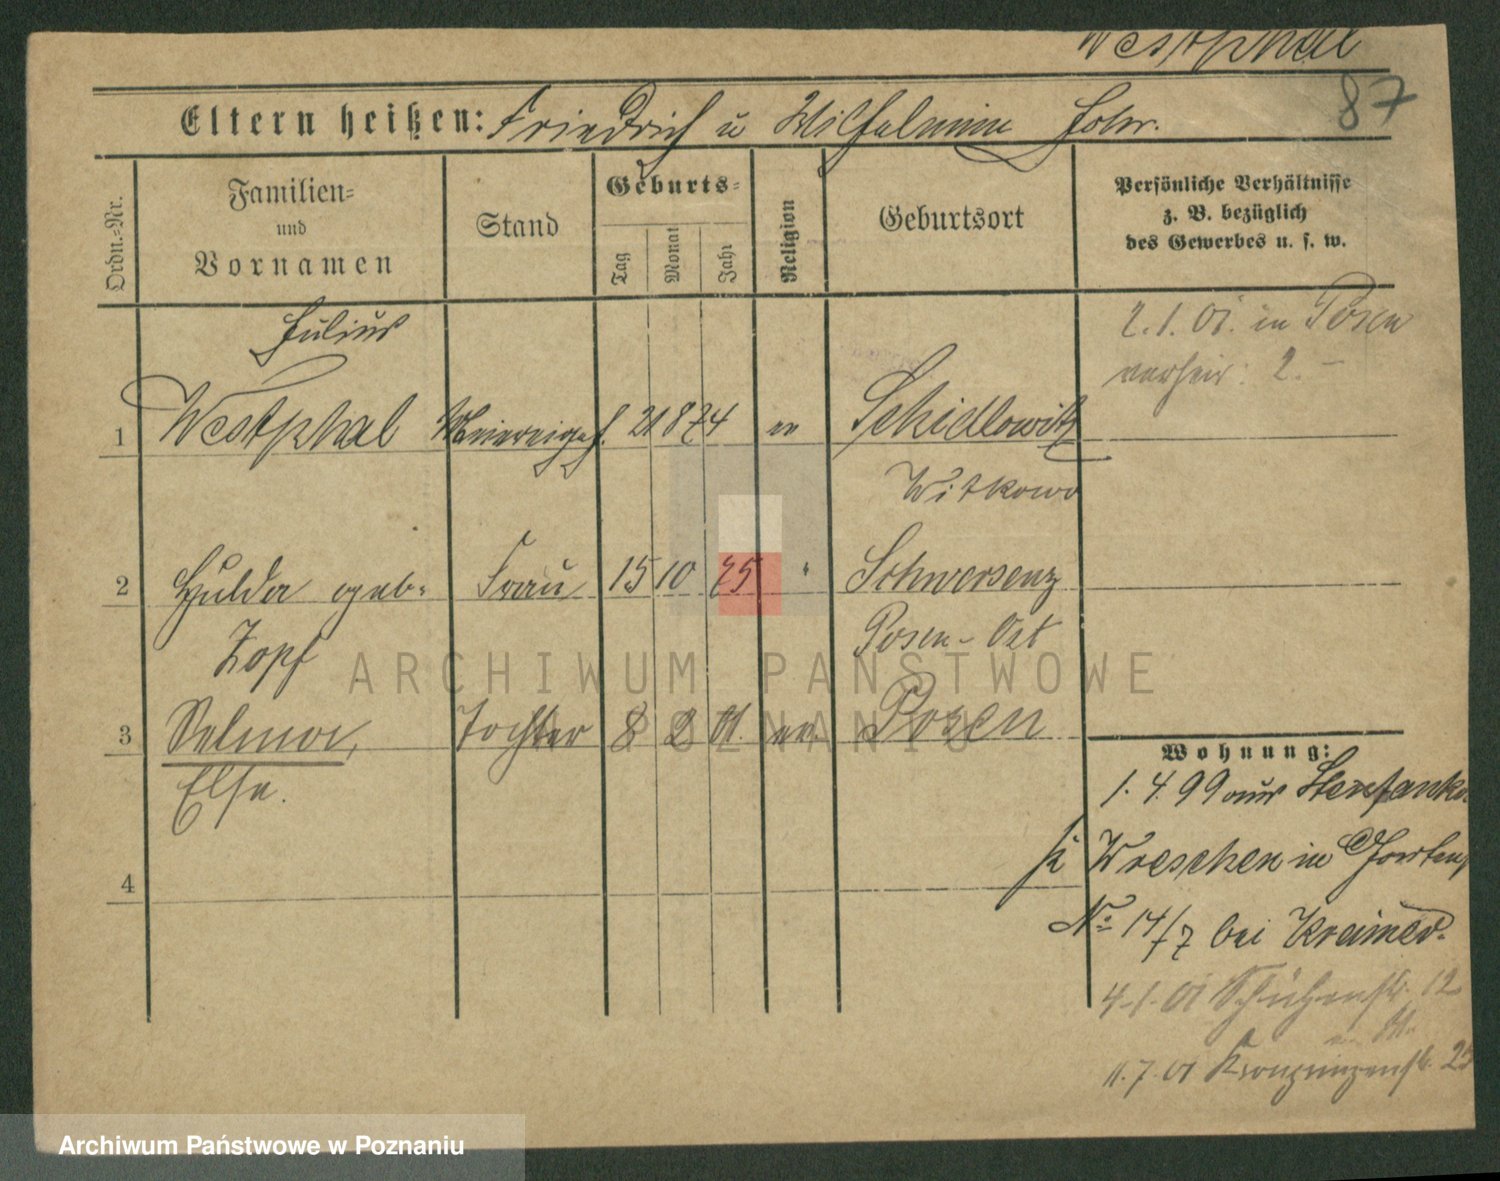 Westphal
87
Eltern heißen: Friedrich u Wilhelmine
Ordn.=Nr.
Familien=
und
Vornamen
Stand
Geburts=
Tag
Monat
Jahr
Religion
Geburtsort
Persönliche Verhältnisse
z. B. bezüglich
des Gewerbes u. s. w.
Julius
2.1.01. in Posen
verheir: 2. –
1 Westphal 21 8 74 ev Schidlowitz
Witkowo
2 Hulda geb. Frau 15 10 75 " Schwersenz
Zopf Posen-Ost
3 Selma, Tochter 8 2 01. ev. Posen
Else.
4
Wohnung:
1. 4. 99 aus
Wreschen in
No. 14/7 bei
4.1.01 Schützenstr. 12
11.7.01 Kronprinzenstr.
ARCHIWUM PAŃSTWOWE
W POZNANIU
Archiwum Państwowe w Poznaniu